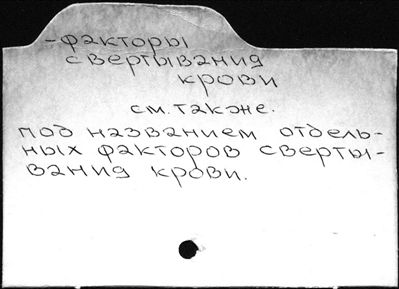 -факторы
свертывания
крови
см. также.
под названием отдель-
ных факторов сверты-
вания крови.